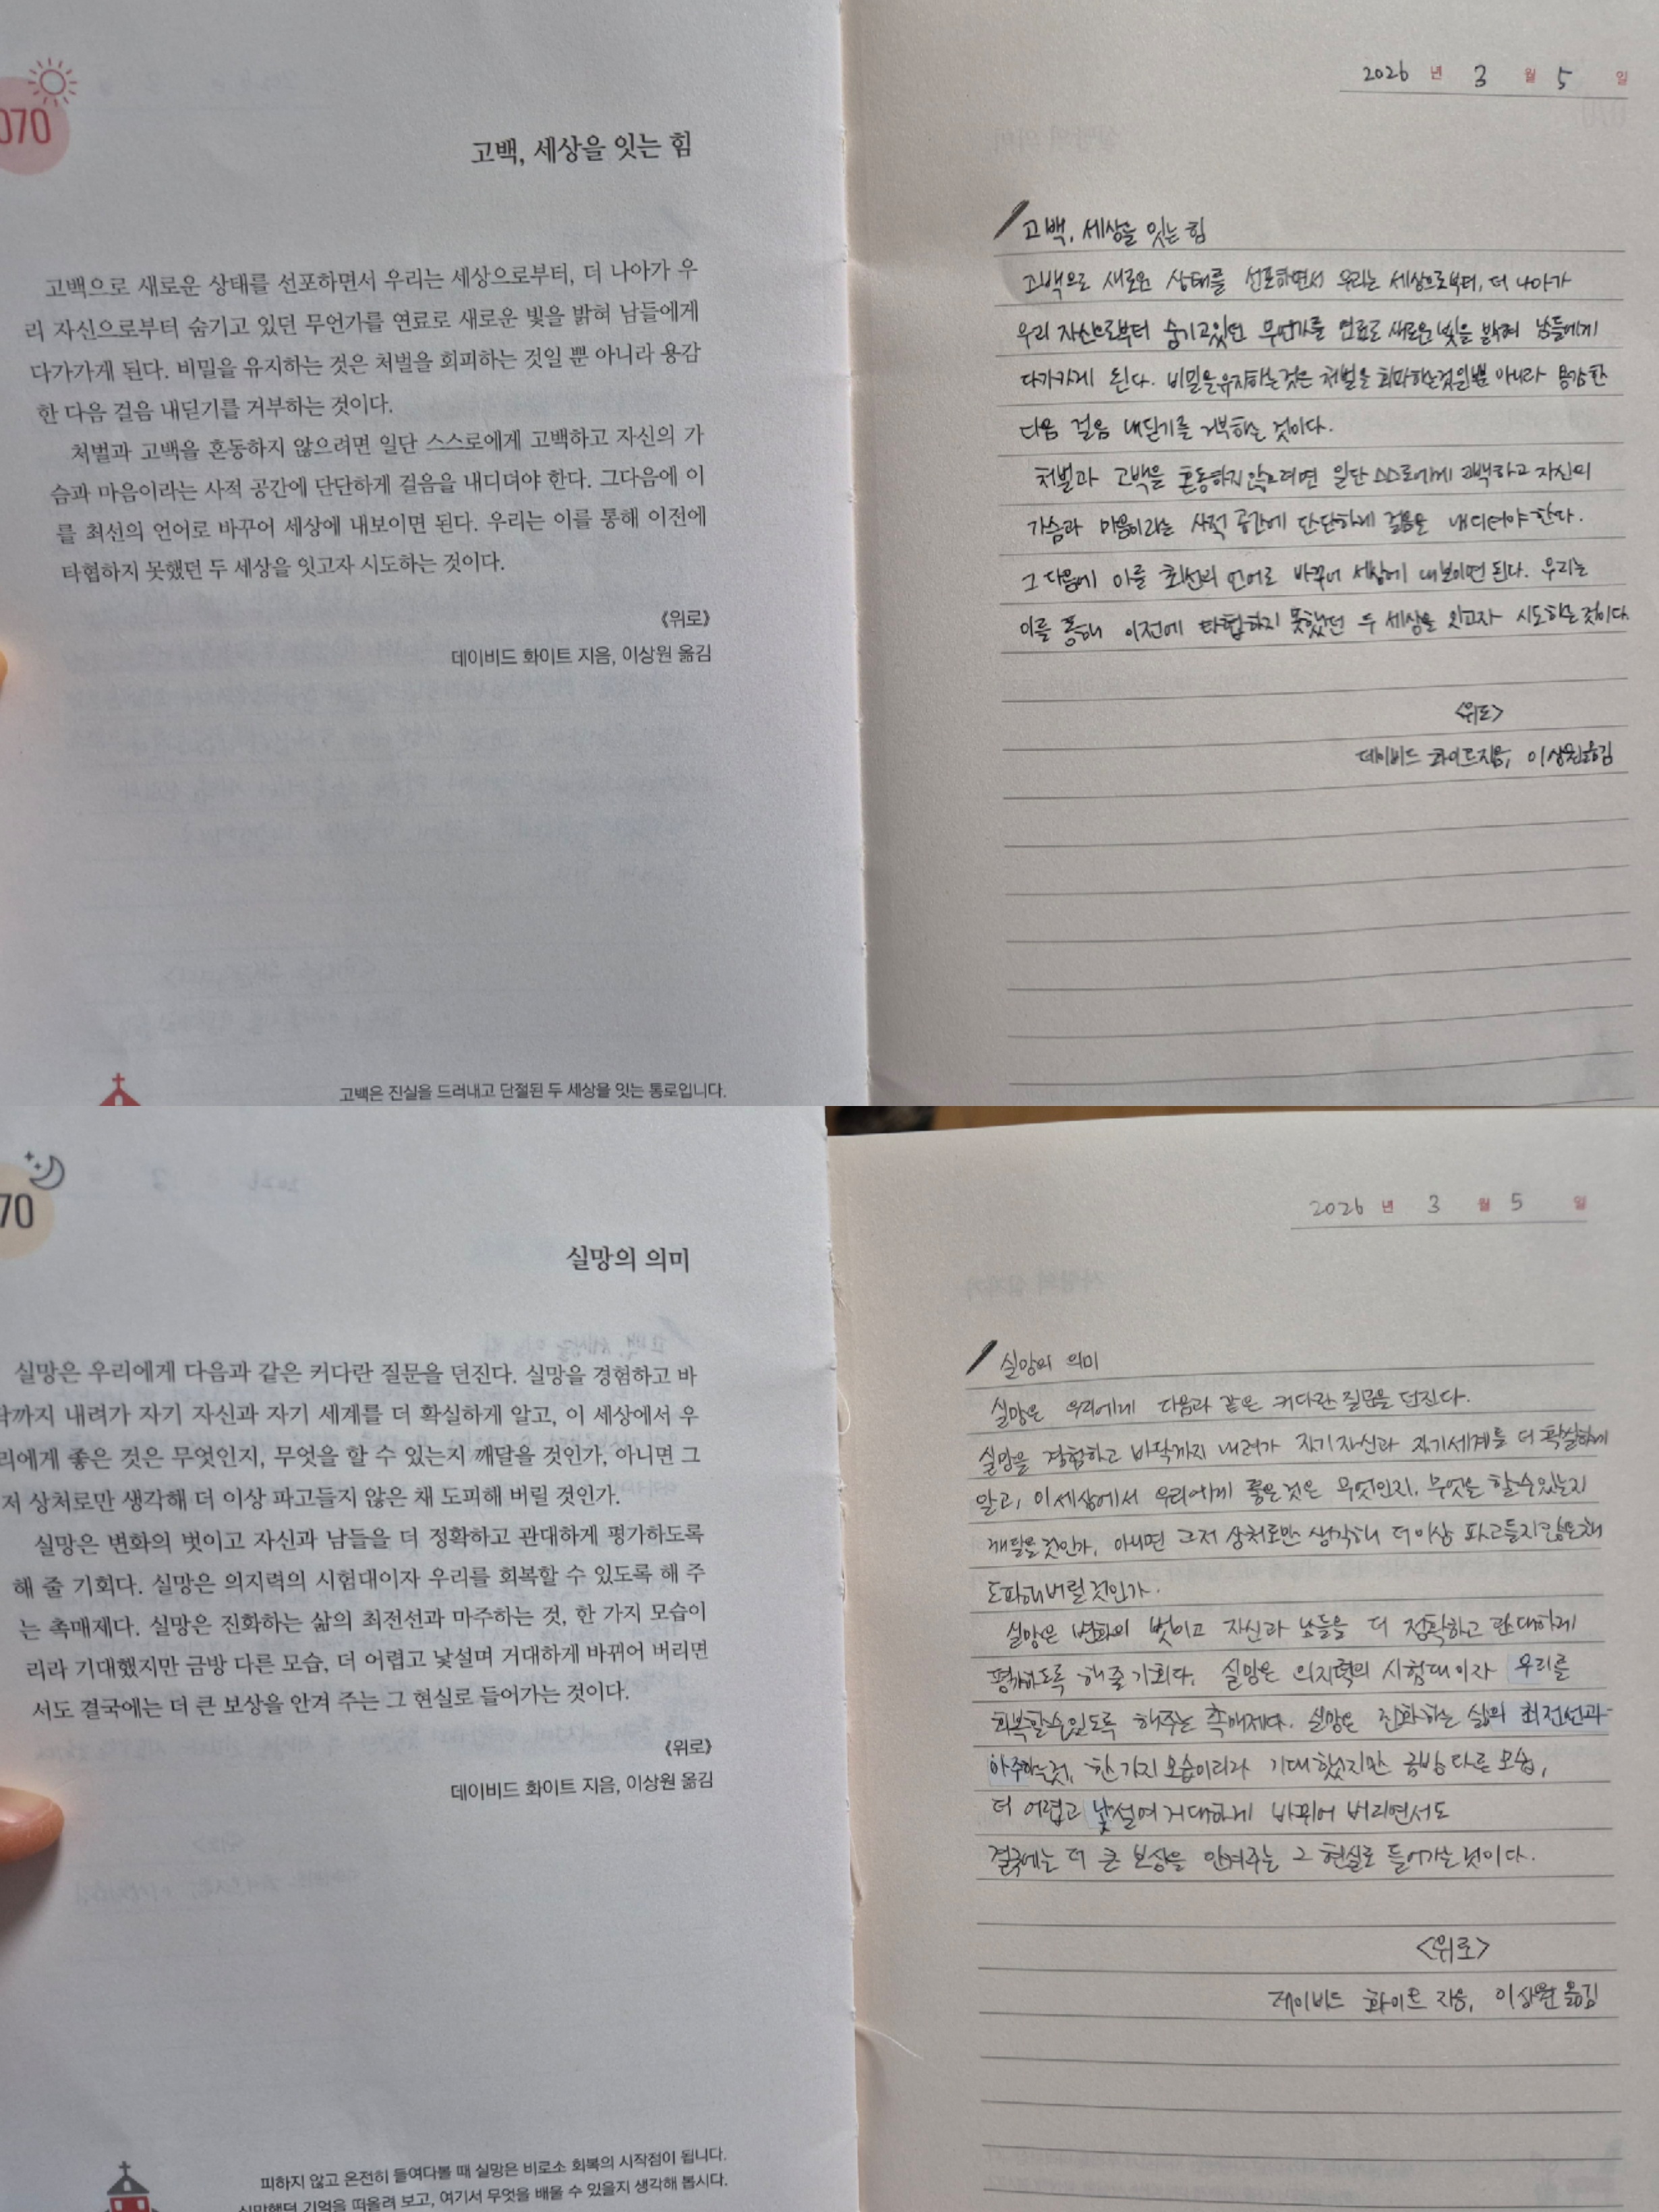 070
고백, 세상을 잇는 힘
고백으로 새로운 상태를 선포하면서 우리는 세상으로부터, 더 나아가 우
리 자신으로부터 숨기고 있던 무언가를 연료로 새로운 빛을 밝혀 남들에게
다가가게 된다. 비밀을 유지하는 것은 처벌을 회피하는 것일 뿐 아니라 용감
한 다음 걸음 내딛기를 거부하는 것이다.
처벌과 고백을 혼동하지 않으려면 일단 스스로에게 고백하고 자신의 가
슴과 마음이라는 사적 공간에 단단하게 걸음을 내디뎌야 한다. 그다음에 이
를 최선의 언어로 바꾸어 세상에 내보이면 된다. 우리는 이를 통해 이전에
타협하지 못했던 두 세상을 잇고자 시도하는 것이다.
《위로》
데이비드 화이트 지음, 이상원 옮김
고백은 진실을 드러내고 단절된 두 세상을 잇는 통로입니다.
2026 년 3 월 5 일
고백, 세상을 잇는 힘
고백으로 새로운 상태를 선포하면서 우리는 세상으로부터, 더 나아가
우리 자신으로부터 숨기고있던 무언가를 연료로 새로운 빛을 밝혀 남들에게
다가가게 된다. 비밀을유지하는것은 처벌을 회피하는것일뿐 아니라 용감한
다음 걸음 내딛기를 거부하는 것이다.
처벌과 고백을 혼동하지않으려면 일단 스스로에게 고백하고 자신의
가슴과 마음이라는 사적 공간에 단단하게 걸음을 내디뎌야한다.
그 다음에 이를 최선의 언어로 바꾸어 세상에 내보이면 된다. 우리는
이를 통해 이전에 타협하지 못했던 두 세상을 잇고자 시도하는것이다.
<위로>
데이비드 화이트지음, 이상원옮김
70
실망의 의미
실망은 우리에게 다음과 같은 커다란 질문을 던진다. 실망을 경험하고 바
닥까지 내려가 자기 자신과 자기 세계를 더 확실하게 알고, 이 세상에서 우
리에게 좋은 것은 무엇인지, 무엇을 할 수 있는지 깨달을 것인가, 아니면 그
저 상처로만 생각해 더 이상 파고들지 않은 채 도피해 버릴 것인가.
실망은 변화의 벗이고 자신과 남들을 더 정확하고 관대하게 평가하도록
해 줄 기회다. 실망은 의지력의 시험대이자 우리를 회복할 수 있도록 해 주
는 촉매제다. 실망은 진화하는 삶의 최전선과 마주하는 것, 한 가지 모습이
리라 기대했지만 금방 다른 모습, 더 어렵고 낯설며 거대하게 바뀌어 버리면
서도 결국에는 더 큰 보상을 안겨 주는 그 현실로 들어가는 것이다.
《위로》
데이비드 화이트 지음, 이상원 옮김
피하지 않고 온전히 들여다볼 때 실망은 비로소 회복의 시작점이 됩니다.
실망했던 기억을 떠올려 보고, 여기서 무엇을 배울 수 있을지 생각해 봅시다.
2026 년 3 월 5 일
실망의 의미
실망은 우리에게 다음과 같은 커다란 질문을 던진다.
실망을 경험하고 바닥까지 내려가 자기자신과 자기세계를 더 확실하게
알고, 이세상에서 우리에게 좋은것은 무엇인지, 무엇을 할수있는지
깨달을것인가, 아니면 그저 상처로만 생각해 더이상 파고들지않은채
도피해버릴것인가.
실망은 변화의 벗이고 자신과 남들을 더 정확하고 관대하게
평가하도록 해줄 기회다. 실망은 의지력의 시험대이자 우리를
회복할수있도록 해주는 촉매제다. 실망은 진화하는 삶의 최전선과
마주하는것, 한가지 모습이리라 기대했지만 금방 다른 모습,
더 어렵고 낯설며 거대하게 바뀌어 버리면서도
결국에는 더 큰 보상을 안겨주는 그 현실로 들어가는것이다.
<위로>
데이비드 화이트 지음, 이상원 옮김